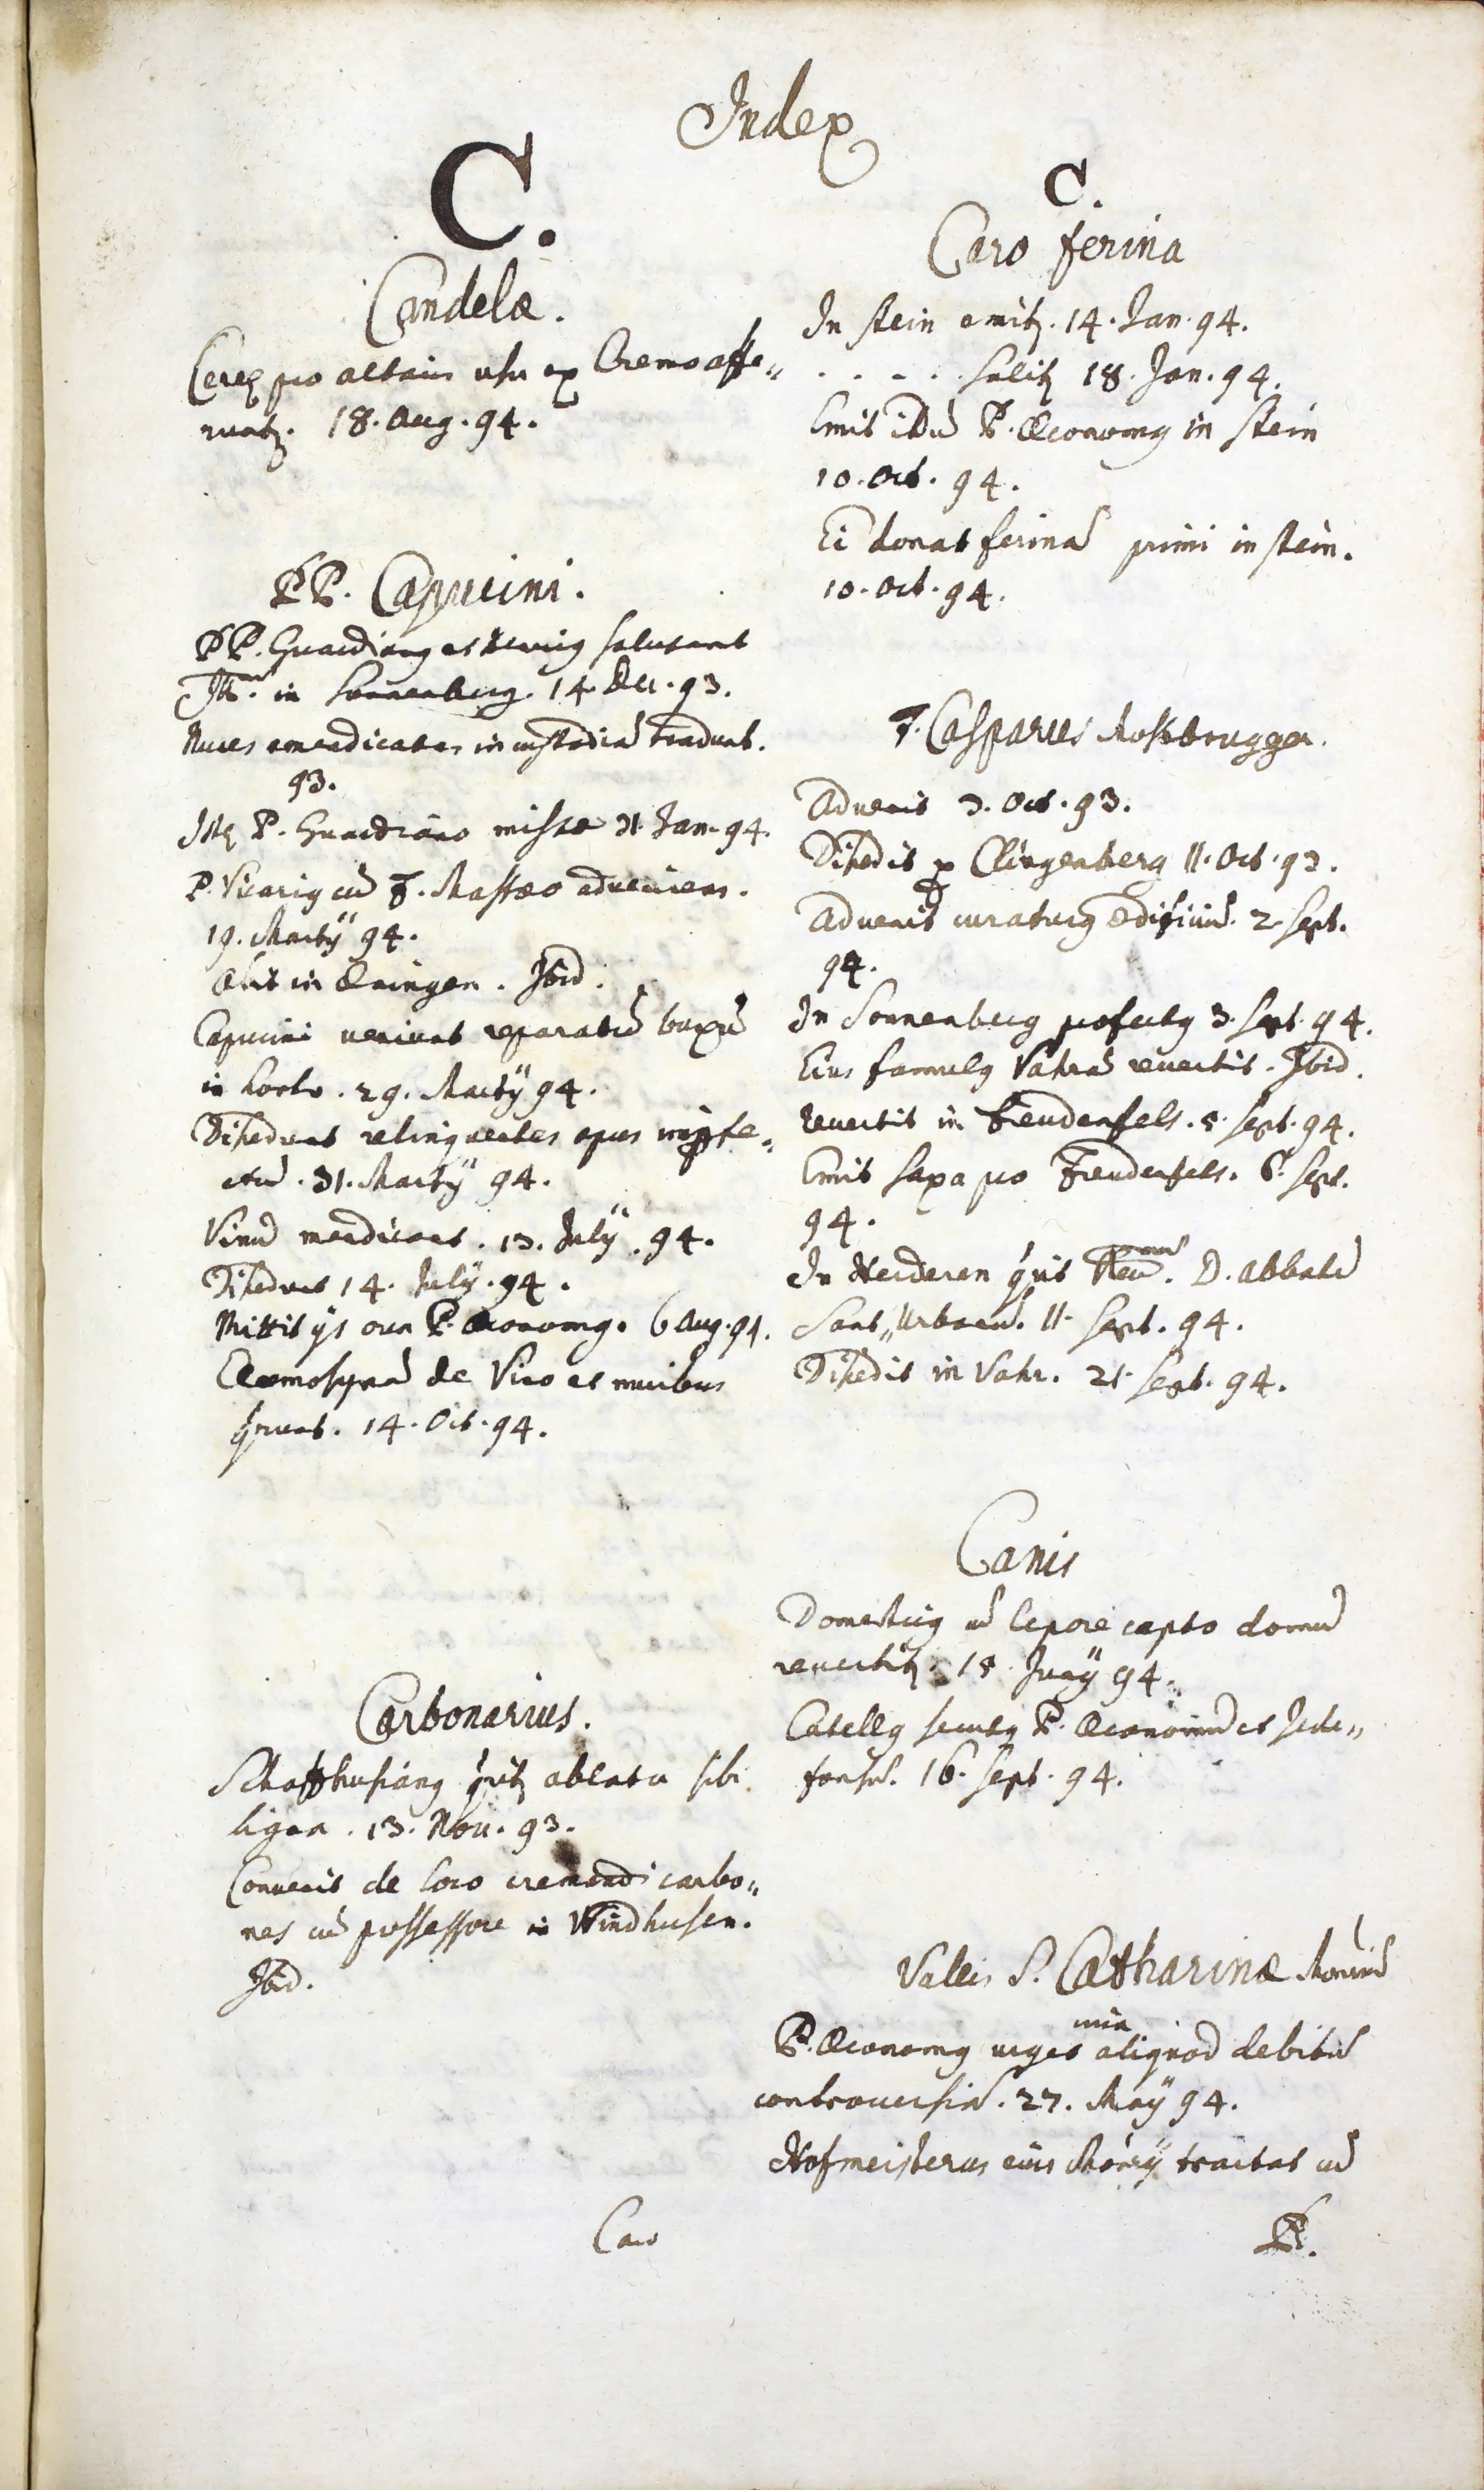 Index
C.
Candelæ.
Cereę pro altaris usu ex Eremo affe„
runtr. 18. Aug. 94.
PP. Capucini.
PP. Guardiang et Vicarig salutant
in Sonnenberg. 14. Dec. 93.
Nuces emendicatas in custodiã tradunt.
93.
P. Guardiano missæ 31. Jan. 94.
P. Vicarig cũ F. Maffæo adveniens.
19. Martÿ 94.
Abit in Æningen. Ibid.
Capucini veniunt reparatũ buxũ
in horto. 29. Martÿ 94.
Discedunt relinquentes opus impfe„
ctũ. 31. Martÿ 94.
Vinũ mendicant. 13. Julÿ. 94.
Discedunt 14. Julÿ. 94.
Mittit ijs ova P. Œconomg. 6 Aug. 94.
Eleemosynã de Vino et nucibus
qrunt. 14. Oct. 94.
Carbonarius.
Schaffhusiang qritr ablata sibi
ligna. 13. Nov. 93.
Convenit de loco cremandi carbo„
nes cũ possessore in Windhusen.
Ibid.
Caro
C.
Caro ferina
In Stein emitr. 14. Jan. 94.
. . . . . salitr 18. Jan. 94.
Emit P. Œconomg in Stein
10. Oct. 94.
Ei donat ferinã primi in Stein.
10. Oct. 94.
F. Casparus Mosbrugger.
Advenit 3. Oct. 93.
Discedit p Clingenberg 11. Oct. 93.
Advenit curaturg ædificiũ. 2. Sept.
94.
In Sonnenberg profectg 3. Sept. 94.
Eius famulg Vahrã revertit. Ibid.
Revertit in Freudenfels. 5. Sept. 94.
Emit saxa pro Freudenfels. 6. Sept.
94.
In Herderen qrit Rev. D. Abbatẽ
Sant„Urbanũ. 11. Sept. 94.
Discedit in Vahr. 21. Sept. 94.
Canis
Domesticg cũ lepore capto domũ
revertitr. 18. Junÿ 94.
Catellg secutg P. Œconomũ et Jide„
fonsũ. 16. Sept. 94.
Vallis S. Catharinæ
P. Œconomg urget aliquod debitũ
controversiã. 27. Maÿ 94.
Hofmeisterus eius tractat cũ
P.